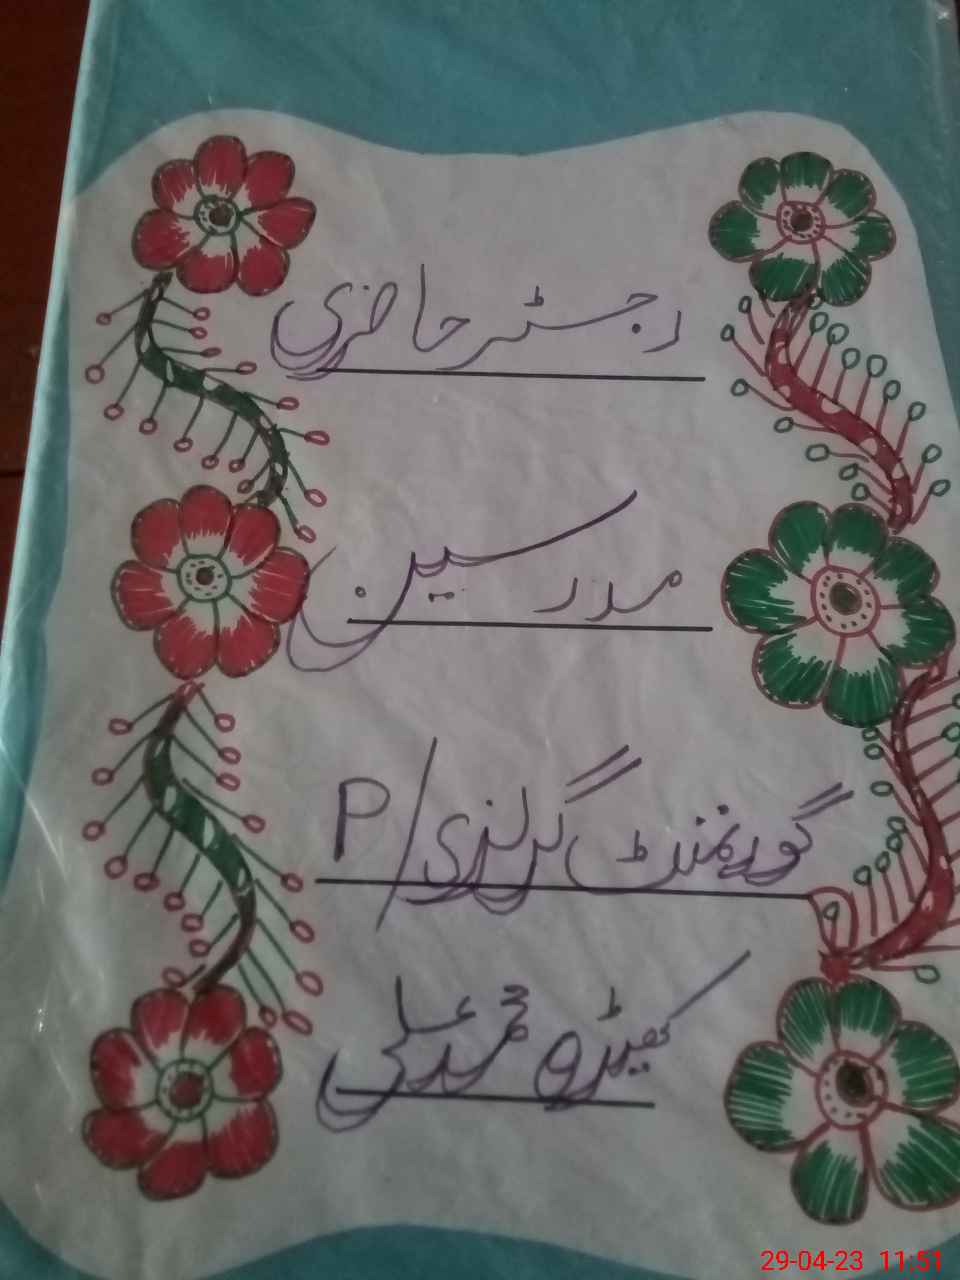 رجسٹر حاضری
مدرسین
گورنمنٹ گرلز ی/P
محمد علی
29-04-23 11:51